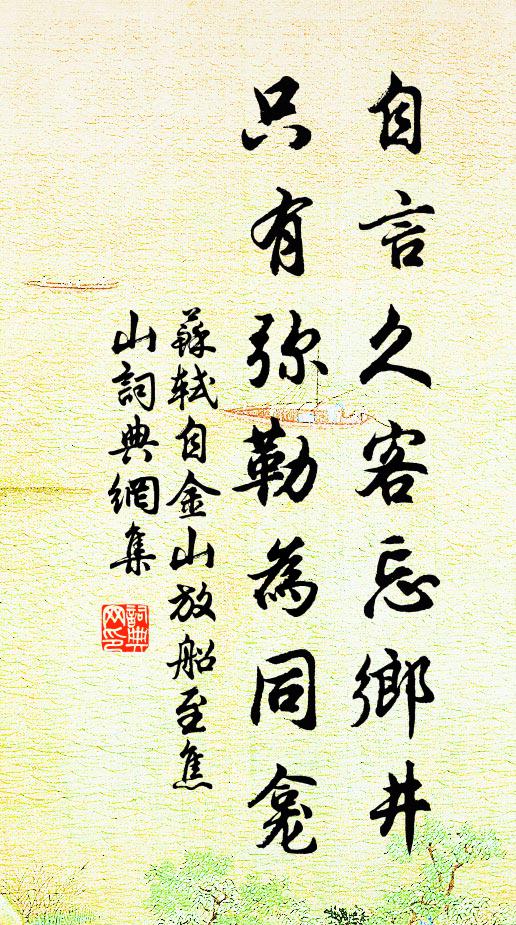 自言久客忘鄉井
只有弥勒為同龛
蘇軾自金山放船至焦
山詞典網集
詞典
网印